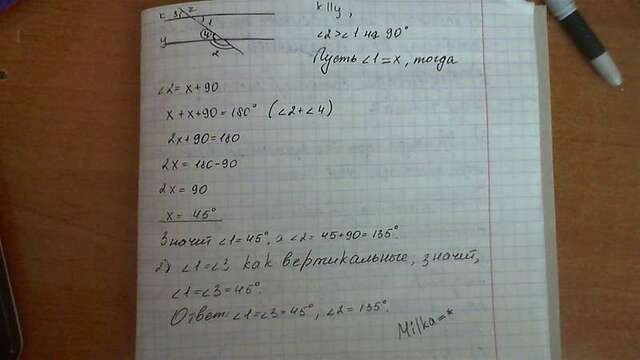 x 3 2
1
y 4
2
x||y,
∠2>∠1 на 90°
Пусть ∠1=x, тогда
∠2= x+90
x+x+90=180° (∠2+∠4)
2x+90=180
2x= 180-90
2x= 90
x= 45°
Значит ∠1=45°, а ∠2= 45+90=135°.
2) ∠1=∠3, как вертикальные, значит,
∠1=∠3=45°.
Ответ: ∠1=∠3=45°, ∠2=135°.
Milka=*